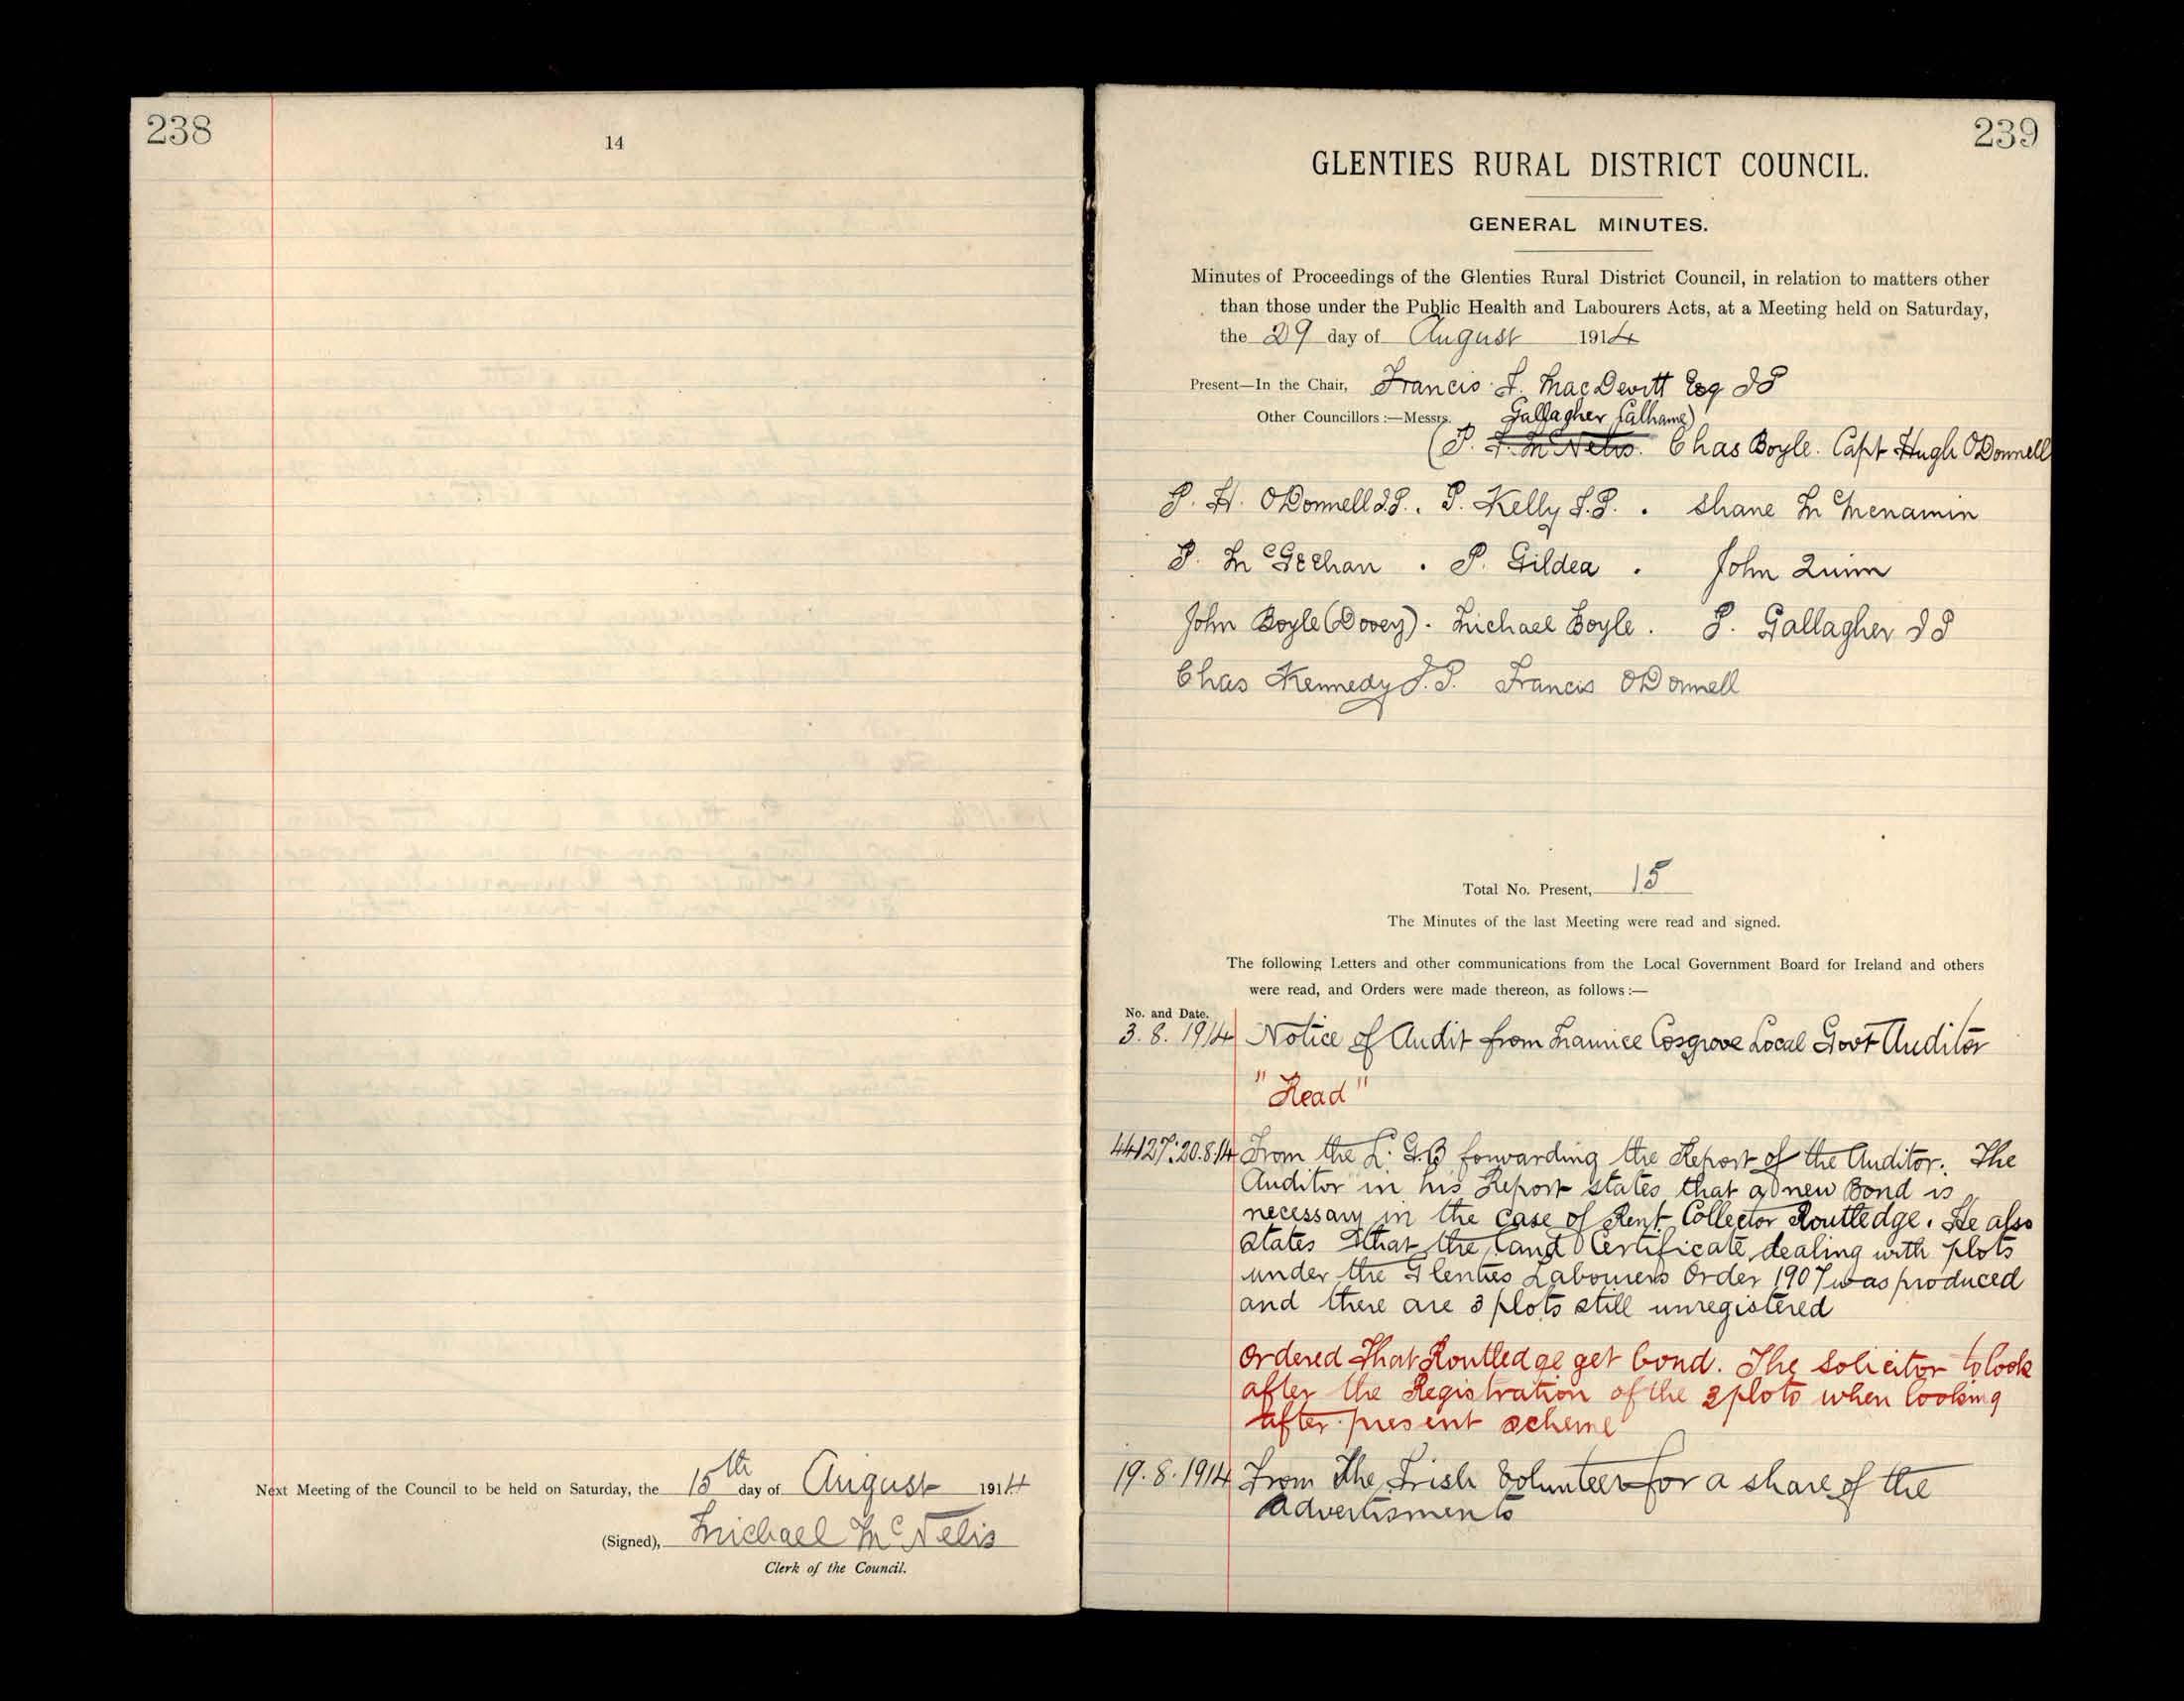 238
14
Next Meeting of the Council to be held on Saturday, the 15th day of August 1914
(Signed), Michael McNelis
Clerk of the Council.
239
GLENTIES RURAL DISTRICT COUNCIL.
GENERAL MINUTES.
Minutes of Proceedings of the Glenties Rural District Council, in relation to matters other
than those under the Public Health and Labourers Acts, at a Meeting held on Saturday,
the 29 day of August 1914
Present—In the Chair, Francis F. MacDevitt Esq JP
Other Councillors:—Messrs. Gallagher (Calhame)
(P. Chas Boyle. Capt Hugh ODonnell
P. H. ODonnell J.P. . P. Kelly J.P. . Shane McMenamin
P. McGeehan . P. Gildea . John Quinn
John Boyle (Dovey). Michael Boyle. P. Gallagher JP
Chas Kennedy J.P. Francis ODonnell
Total No. Present, 15
The Minutes of the last Meeting were read and signed.
The following Letters and other communications from the Local Government Board for Ireland and others
were read, and Orders were made thereon, as follows:—
No. and Date.
3. 8. 1914 Notice of Audit from Maurice Cosgrove Local Govt Auditor
"Read"
44127:20.8.14 From the L. G. B forwarding the Report of the Auditor. The
Auditor in his Report states that a new Bond is
necessary in the case of Rent Collector Routledge. He also
states that the Land Certificate dealing with plots
under the Glenties Labourers Order 1907 was produced
and there are 3 plots still unregistered
Ordered That Routledge get bond. The Solicitor to look
after the Registration of the 3 plots when looking
after present scheme
19.8.1914 From The Irish Volunteer for a share of the
Advertisments